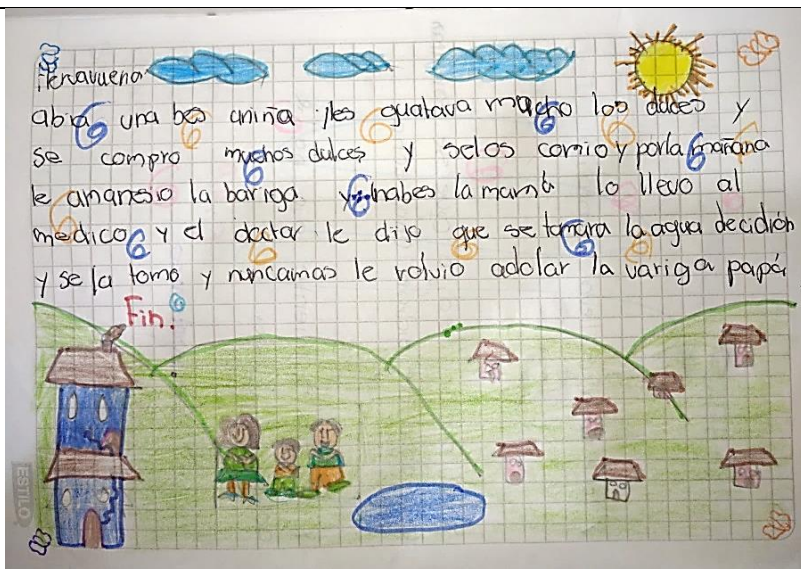 abia una bes aniña les guatava mucho los dulces y
se compro muchos dulces y selos comio y porla mañana
le amanesio la bariga y inabes la mamá lo llevo al
medico y el doctor le dijo que se tomara la agua decidión
y se la tomo y nuncamas le volvio adolar la variga papá
Fin.
ESTILO